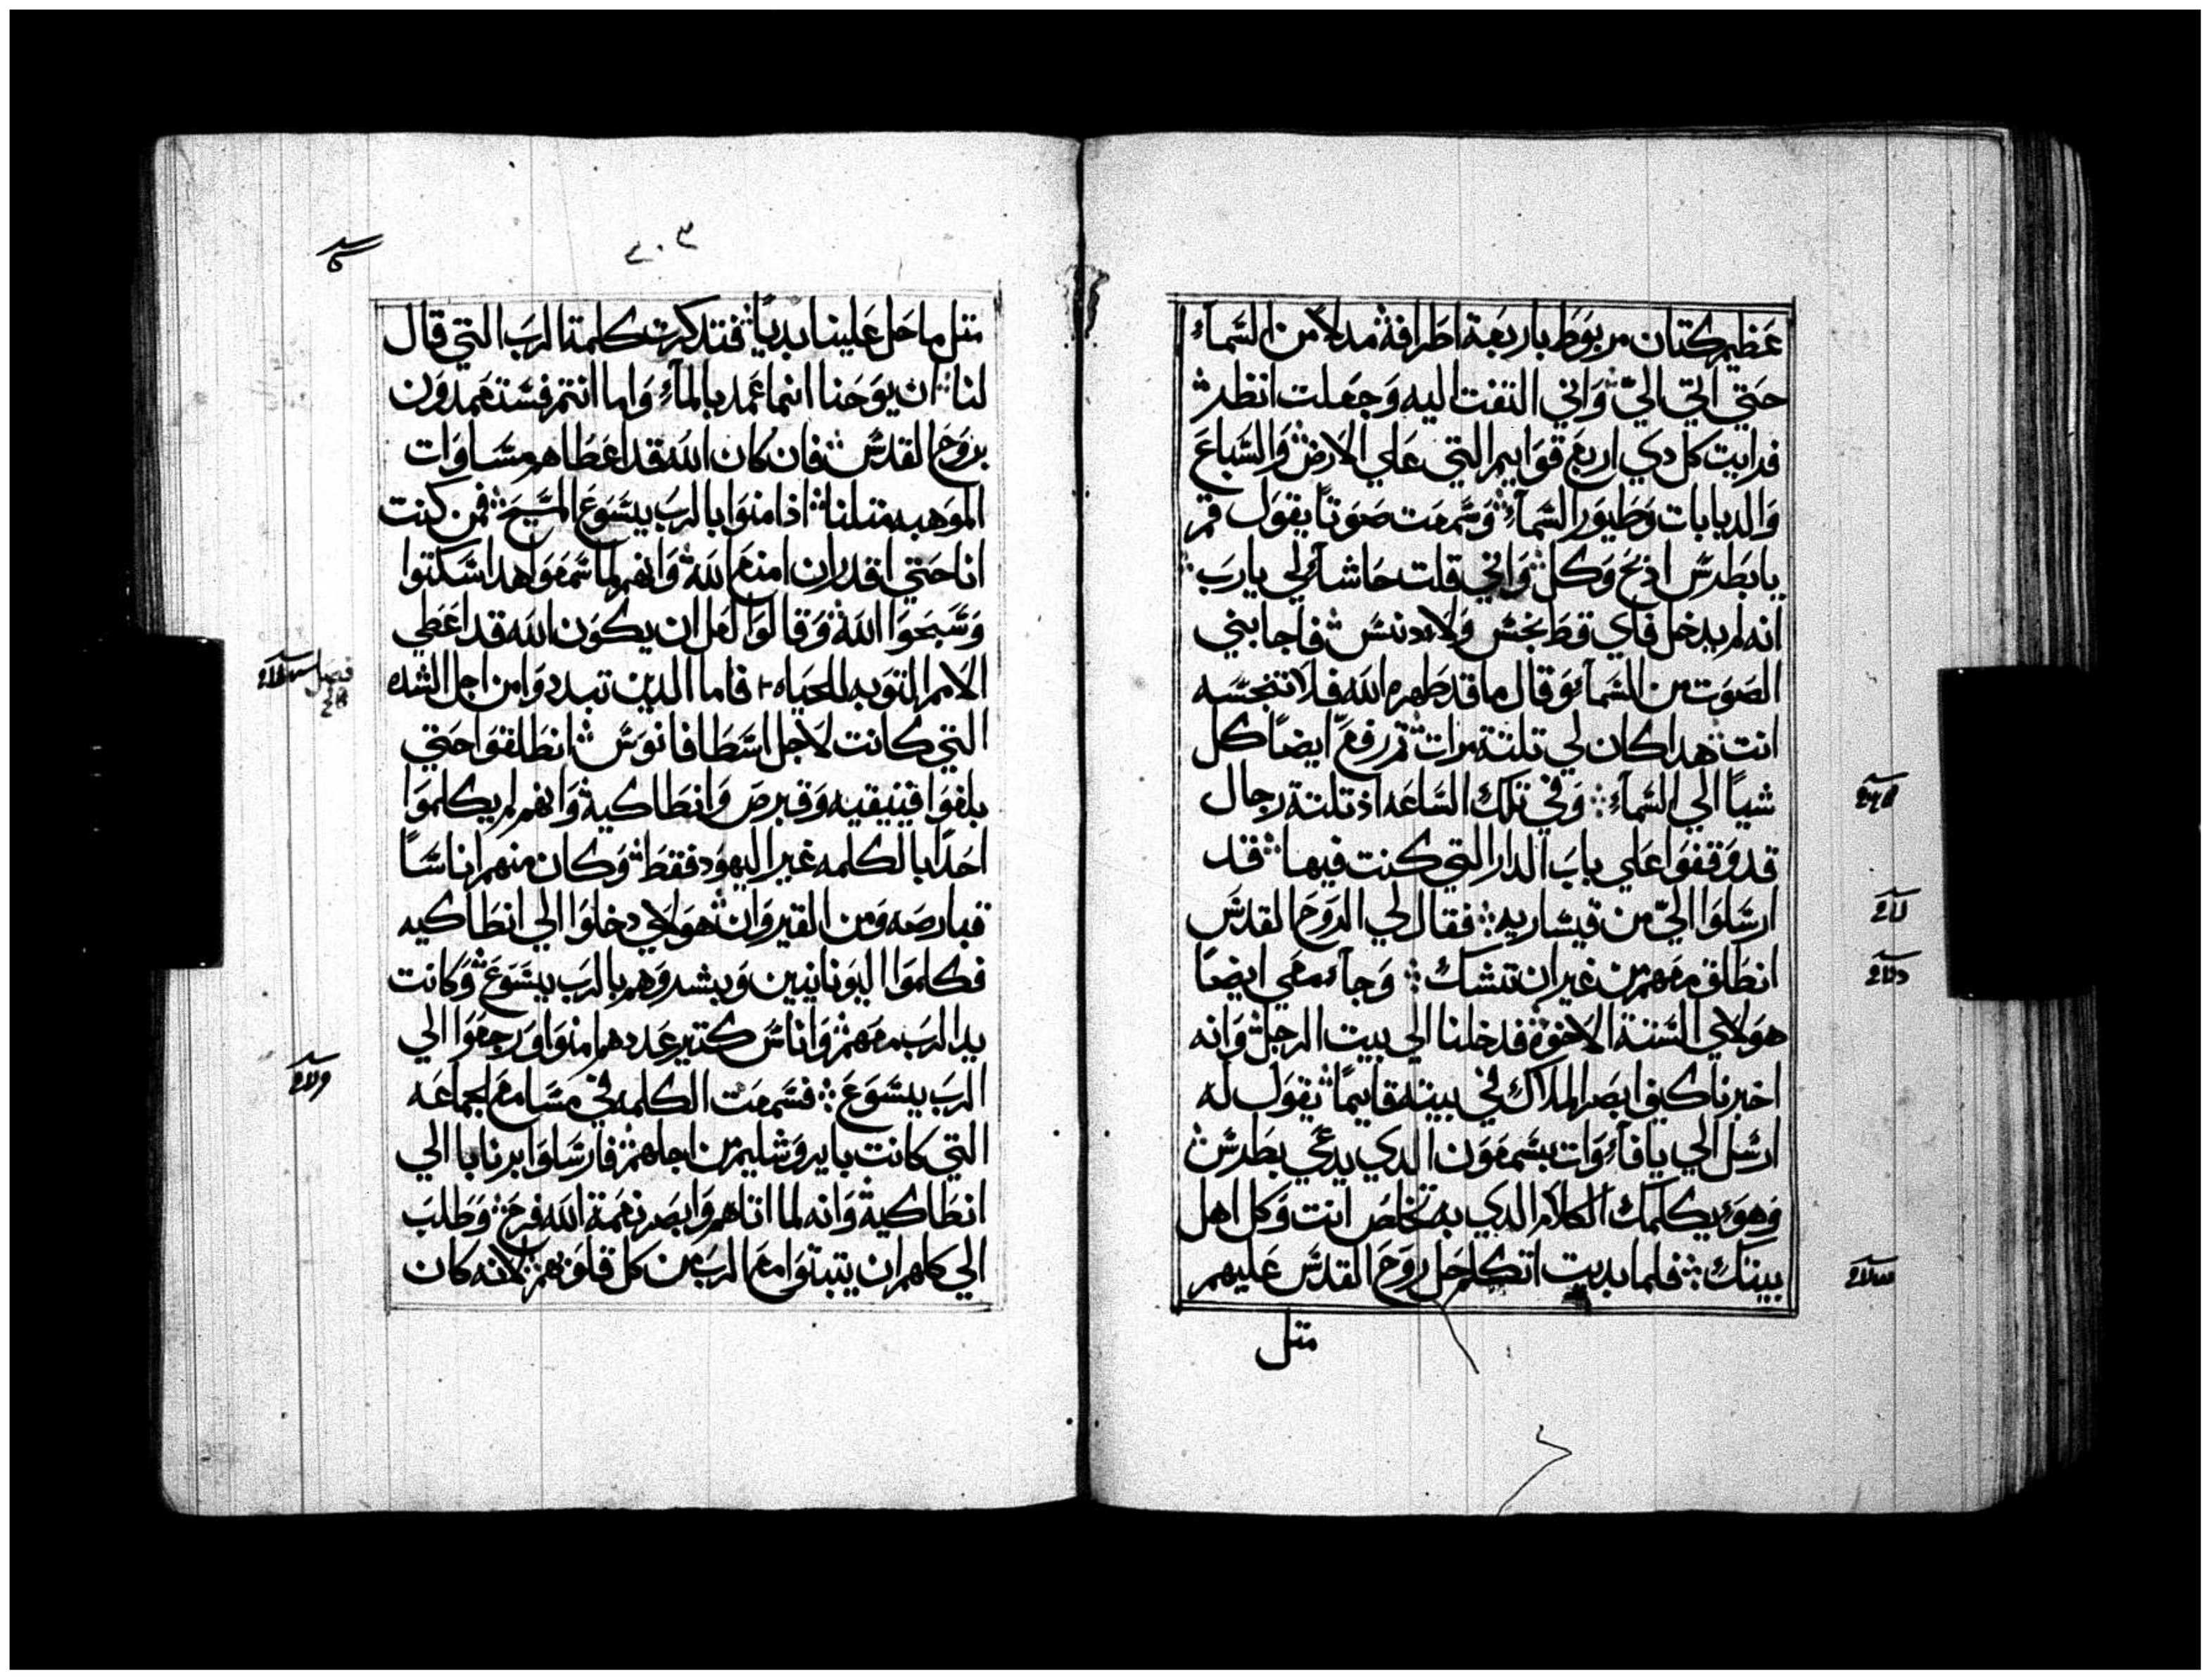 عظيم كتان مربوط باربعة اطرافه مدلا من السمآء
حتي اتي اليّ وَاني التفت اليه وَجعلت انظر
فرايت كل دي اربع قوايم التي علي الارض وَالسباع
وَالدبابات وَطيور السمآء وَسمعت صوتاً يقول قم
يا بطرس اذبح وَكل وَاني قلت حاشآ لي يارب
انه لم يدخل فاي قط نجس وَلا دنس فاجابني
الصوت من السمآء وَقال ما قد طهره الله فلا تنجسه
انت هدا كان لي تلتة مرات تم رفع ايضاً كل
شياً الي السمآء وَفي تلك الساعه اد تلتة رجال
قد وَقفوا علي باب الدار التي كنت فيها قد
ارسلوا اليّ من قيساريه فقال لي الروح القدس
انطلق معهم من غير ان تتشك وَجآء معي ايضا
هولاي الستة الاخوة فدخلنا الي بيت الرجل وَانه
اخبرنا كيف ابصر الملاك في بيته قايماً يقول له
ارسل الي يافآ وَات بسمعون الدي يدعي بطرس
وَهو يكلمك الكلام الدي به تخلص انت وَكل اهل
بيتك فلما بديت اتكلم حل روح القدس عليهم
متل
٢٠٣
متل ما حل علينا بدياً فتدكرت كلمة الرب التي قال
لنا ان يوحنا انما عمد بالمآء وَاما انتم فستعمدون
بروح القدس فان كان الله قد اعطاهم مساوات
الموهبه متلنا اذ امنوا بالرب يسوع المسيح فمن كنت
انا حتي اقدر ان امنع الله وَانهم لما سمعوا هدا سكتوا
وَسبحوا الله وَقالوا لعل ان يكون الله قد اعطي
الامم التوبه للحياه فاما الدين تبددوا من اجل الشده
التي كانت لاجل اسطافانوس انطلقوا حتي
بلغوا فينيقيه وَقبرص وَانطاكية وَانهم لم يكلموا
احدًا بالكلمه غير اليهود فقط وَكان منهم اناسًا
قبارصه وَمن القيروان هولاي دخلوا الي انطاكيه
فكلموا اليونانيين وَبشروهم بالرب يسوع وَكانت
يد الرب معهم وَاناس كتير عددهم امنوا وَرجعوا الي
الرب يسوع فسمعت الكلمه في مسامع الجماعه
التي كانت بايروشليم من اجلهم فارسلوا برنابا الي
انطاكية وَانه لما اتاهم وَابصر نعمة الله فرح وَطلب
الي كلهم ان يتبتوا مع الرب من كل قلوبهم لانه كان
فصل